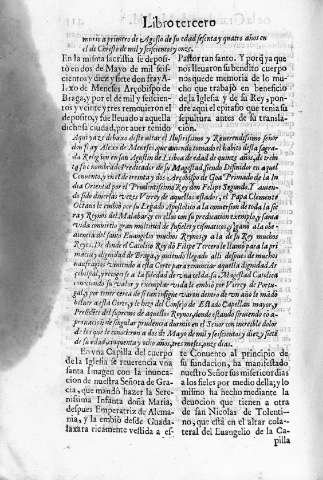 Libro tercero
murio a primero de Agosto de su edad sesenta y quatro años en
el de Christo de mil y seiscientos y onze.
En la misma sacristia se deposi-
tò en dos de Mayo de mil seis-
cientos y diez y siete don fray A-
lexo de Meneses Arçobispo de
Braga; y por el de mil y seiscien-
tos y veinte y tres remouieron el
deposito, y fue lleuado a aquella
dicha ciudad, por auer tenido
Pastor tan santo. Y porque ya que
nos lleuaron su bendito cuerpo
nos quede memoria de lo mu-
cho que trabajò en beneficio
de la Iglesia y de su Rey, pon-
drè aqui el epitafio que tenia su
sepultura antes de su transla-
cion.
Aqui yaze debaxo deste altar el Illustrissimo y Reuerendissimo señor
don fray Alexo de Meneses, que auiendo tomado el habito desta sagra-
da Religion en san Agustin de Lisboa de edad de quinze años, de trein-
ta fue nombrado Predicador de su Magestad, siendo Difinidor en aquel
Conuento, y en el de treinta y dos Arçobispo de Goa Primado de la In-
dia Oriental por el Prudentissimo Rey don Felipe Segundo. Y auien-
do sido diuersas vezes Virrey de aquellos estados, el Papa Clemente
Octauo le embiò por su Legado Apostolico a la conuersion de toda la ser-
ra y Reynos del Malabar, y en ellos con su predicacion exemplo, y santa
vida conuirtio gran multitud de Infieles y cismaticos, y ganò a la obe-
diencia del sumo Euangelio muchos Reynos, y a la de su Rey muchos
Reyes. De donde el Catolico Rey don Felipe Tercero le llamò para la pri-
macia y dignidad de Braga, y auiendo llegado alli despues de muchos
naufragios vino a esta Corte para renunciar aquella dignidad Ar-
çobispal, y recogerse a la soledad de vna celda. Su Magestad Catolica
conociendo su valor y exemplar vida le embiò por Virrey de Portu-
gal, y por tener cerca de si tan insigne varon dentro de vn año le man-
dò boluer a esta Corte, y le hizo del Consejo de Estado Capellan mayor, y
Presidente del supremo de aquellos Reynos, siendo estando siruiendo cõ a-
probacion de singular prudencia durmio en el Señor con increible dolor
de los que le conocieron a dos de Mayo de mil y seiscientos y diez y siete
de su edad, cinquenta y ocho años, tres meses, onze dias.
En vna Capilla del cuerpo
de la Iglesia se reuerencia vna
santa Imagen con la inuoca-
cion de nuestra Señora de Gra-
cia, que mandò hazer la Sere-
nissima Infanta doña Maria,
despues Emperatriz de Alema-
nia, y la embiò desde Guada-
laxara ricamente vestida a es-
te Conuento al principio de
su fundacion, ha manifestado
nuestro Señor sus misericordias
a los fieles por medio della; y lo
mismo ha hecho mediante la
deuocion que tienen a otra
de san Nicolas de Tolenti-
no, que està en el altar cola-
teral del Euangelio de la Ca-
pilla